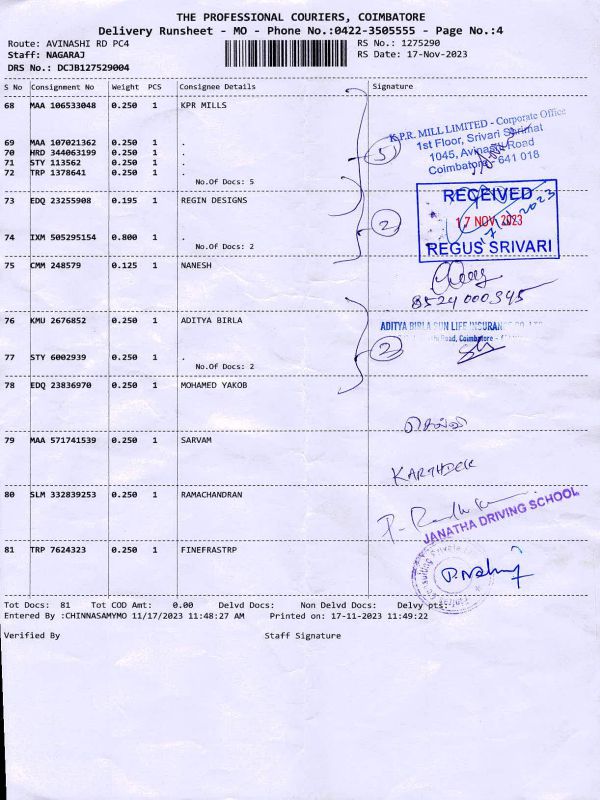 THE PROFESSIONAL COURIERS, COIMBATORE
Delivery Runsheet - MO - Phone No.:0422-3505555 - Page No.:4
Route: AVINASHI RD PC4
RS No.: 1275290
Staff: NAGARAJ
RS Date: 17-Nov-2023
DRS No.: DCJB127529004
S No Consignment No Weight PCS Consignee Details Signature
68 MAA 106533048 0.250 1 KPR MILLS
K.P.R. MILL LIMITED - Corporate Office
1st Floor, Srivari Shrimat
1045, Avinashi Road
Coimbatore - 641 018
69 MAA 107021362 0.250 1 .
70 HRD 344063199 0.250 1 .
71 STY 113562 0.250 1 .
72 TRP 1378641 0.250 1 .
No.Of Docs: 5
5
73 EDQ 23255908 0.195 1 REGIN DESIGNS
RECEIVED
17 NOV 2023
REGUS SRIVARI
74 IXM 505295154 0.800 1 .
No.Of Docs: 2
2
75 CMM 248579 0.125 1 NANESH
8524000545
76 KMU 2676852 0.250 1 ADITYA BIRLA
ADITYA BIRLA SUN LIFE INSURANCE CO. LTD
Road, Coimbatore -
77 STY 6002939 0.250 1 .
No.Of Docs: 2
2
78 EDQ 23836970 0.250 1 MOHAMED YAKOB
79 MAA 571741539 0.250 1 SARVAM
KARTHICK
80 SLM 332839253 0.250 1 RAMACHANDRAN
JANATHA DRIVING SCHOOL
81 TRP 7624323 0.250 1 FINEFRASTRP
Tot Docs: 81 Tot COD Amt: 0.00 Delvd Docs: Non Delvd Docs: Delvy pts:
Entered By :CHINNASAMYMO 11/17/2023 11:48:27 AM Printed on: 17-11-2023 11:49:22
Verified By Staff Signature